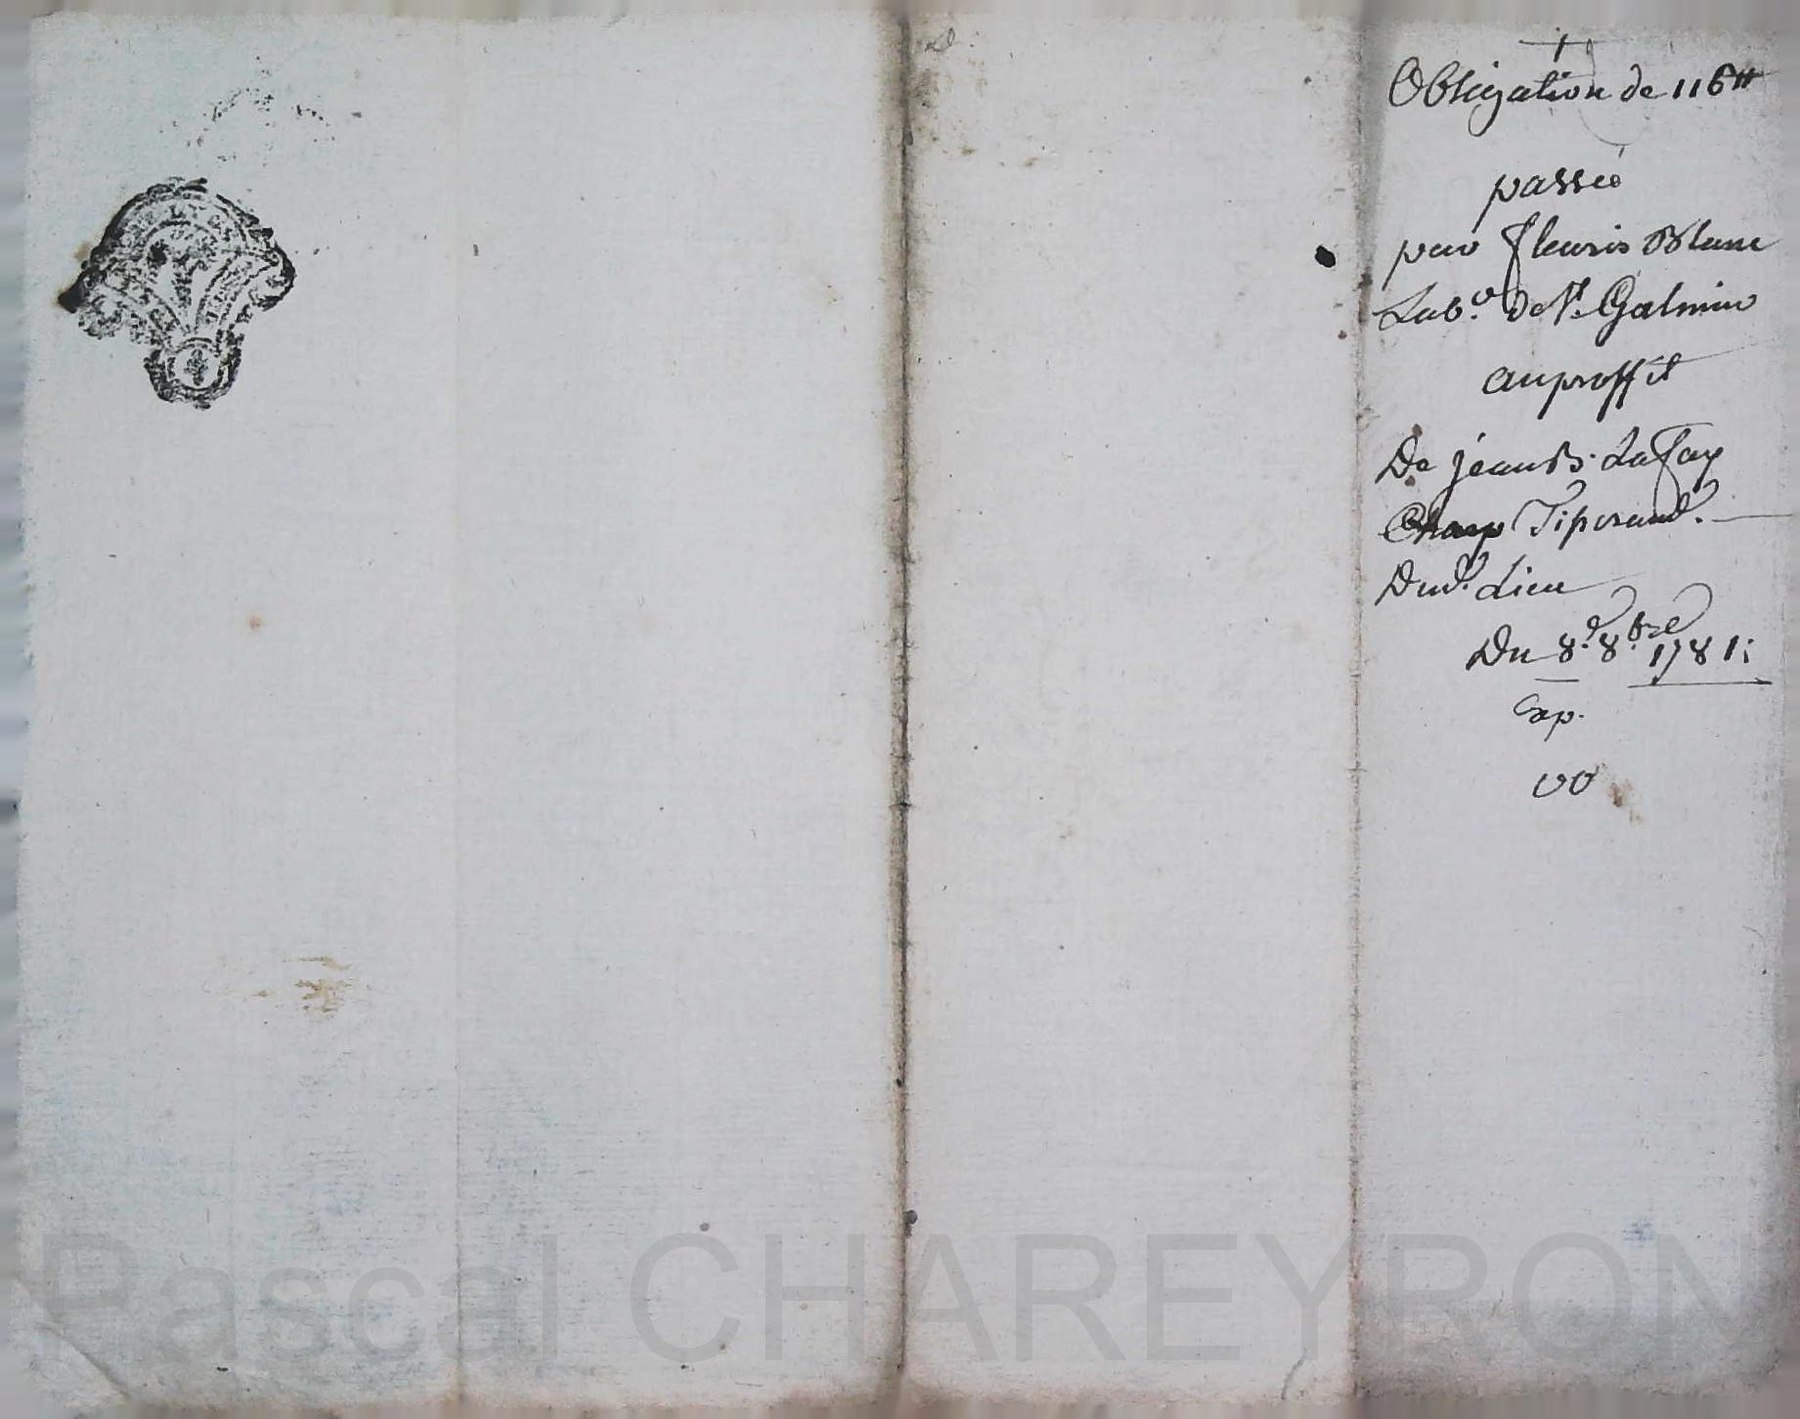 Obligation de 116tt
passée
par fleuris Blanc
Labr. de St. Galmier
auproffit
De jean B. Lafay
Charp Tiperand.
Dud. Lieu
Du 8e. 8.bre 1781;
Exp.
Pascal CHAREYRON